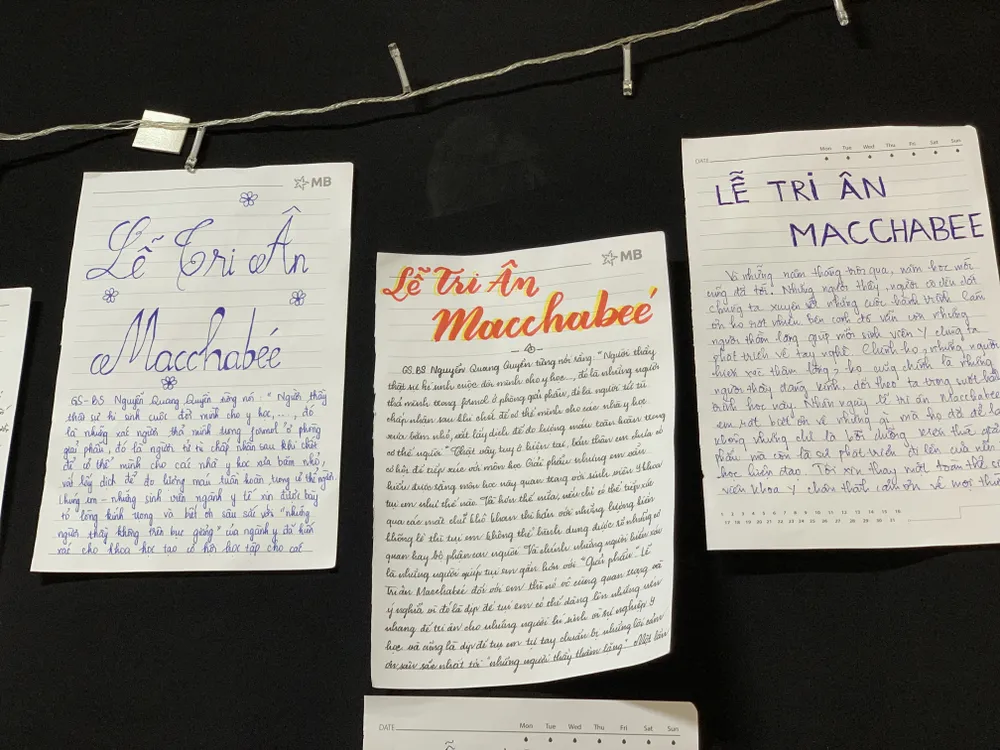 MB
Lễ Tri Ân
Macchabéé
GS-BS Nguyễn Quang Quyền từng nói: "Người thầy
thật sự hi sinh cuộc đời mình cho y học,..., đó
là những xác người thả mình trong formol ở phòng
giải phẫu, đó là người từ từ chấp nhận sau khi chết
để cơ thể mình cho các nhà y học xưa bằm nhỏ,
và lấy dịch để đo lường máu tuần hoàn trong cơ thể người"
Chúng em - những sinh viên ngành y tế xin được bày
tỏ lòng kính trọng và biết ơn sâu sắc với "những
người thầy không trên bục giảng" của ngành y đã hiến
xác cho khoa học tạo cơ hội học tập cho các
MB
Lễ Tri Ân
Macchabeé
GS.BS Nguyễn Quang Quyền từng nói rằng: "Người thầy
thật sự hi sinh cuộc đời mình cho y học..., đó là những người
thả mình trong formol ở phòng giải phẫu, đó là người từ từ
chấp nhận sau khi chết để cơ thể mình cho các nhà y học
xưa bằm nhỏ, xắt lấy dịch để đo lường máu tuần hoàn trong
cơ thể người" Thật vậy, tuy ở hiện tại, bản thân em chưa có
cơ hội để tiếp xúc với môn học Giải phẫu nhưng em vẫn
hiểu được rằng môn học này quan trọng với sinh viên Y khoa
tụi em như thế nào. Và hơn thế nữa, nếu chỉ có thể tiếp xúc
qua các mặt chữ khô khan thì hẳn với những lượng kiến
khổng lồ thì tụi em không thể hình dung được rõ những cơ
quan hay bộ phận con người. Và chính những người hiến xác
là những người giúp tụi em gần hơn với "Giải phẫu". Lễ
Tri ân Macchabeé đối với em thì nó vô cùng quan trọng và
ý nghĩa vì đó là dịp để tụi em có thể dâng lên những nén
nhang để tri ân cho những người hi sinh vì sự nghiệp Y
học và cũng là dịp để tụi em tự tay chuẩn bị những lời cảm
ơn sâu sắc nhất tới "những người thầy thầm lặng". Một lần
DATE Mon Tue Wed Thu Fri Sat Sun
LỄ TRI ÂN
MACCHABEE
Và những năm tháng trôi qua, năm học mới
cũng đã tới. Những người thầy, người cô dẫn dắt
chúng ta xuyên suốt những cuộc hành trình. Cảm
ơn họ rất nhiều. Bên cạnh đó vẫn còn những
người thầm lặng giúp mỗi sinh viên Y chúng ta
phát triển về tay nghề. Chính họ, những người
hiến xác thầm lặng, họ cũng chính là những
người thầy đáng kính, dõi theo ta trong suốt hành
trình học này. Nhân ngày lễ tri ân Macchabee
em rất biết ơn về những gì mà họ đã để lại
không những chỉ là bồi dưỡng kiến thức giải
phẫu mà còn là sự phát triển đi lên của nền
học hiện đại. Tôi xin thay mặt toàn thể
viên khoa Y chân thành cảm ơn về mọi thứ
1 2 3 4 5 6 7 8 9 10 11 12 13 14 15 16
17 18 19 20 21 22 23 24 25 26 27 28 29 30 31
DATE Mon Tue Wed Thu Fri Sat Sun